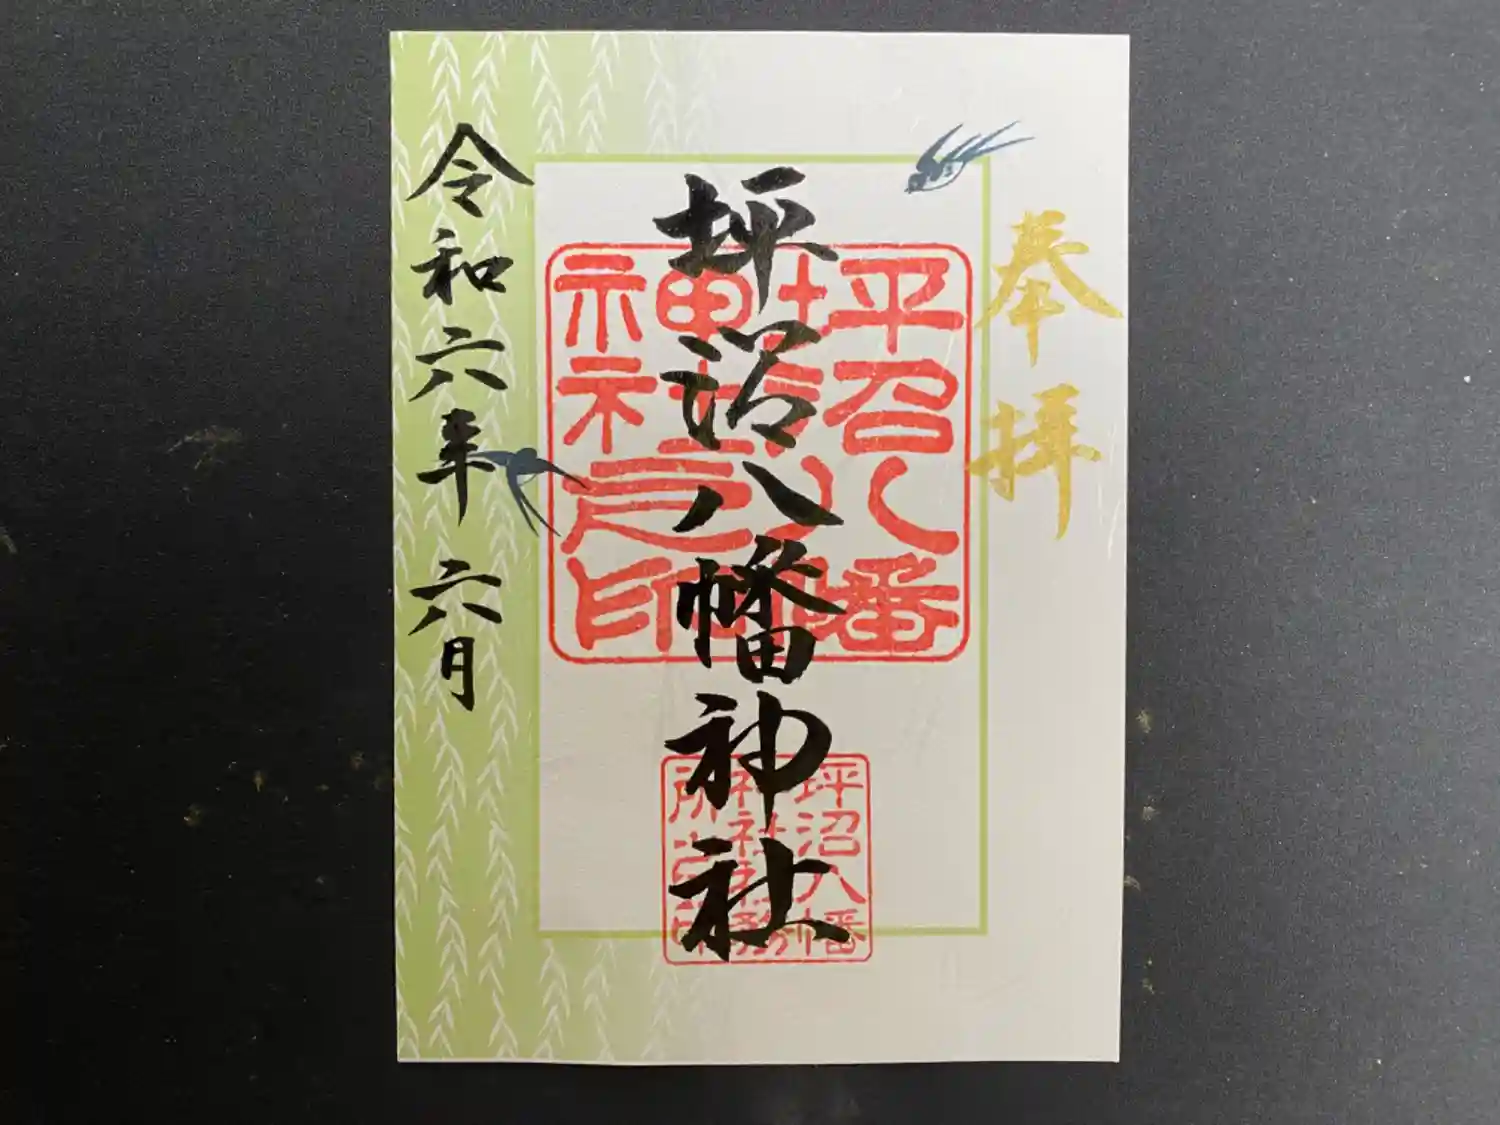 奉拝
坪沼八幡神社
坪沼八幡
神社之印
坪沼八幡
神社社務
所之印
令和六年 六月